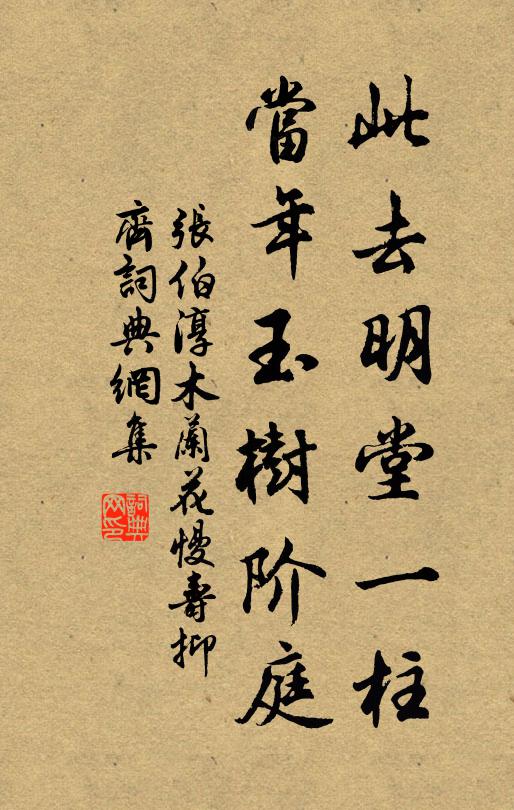 此去明堂一柱
當年玉樹阶庭
張伯淳木蘭花慢壽抑
齋詞典網集
詞典網印